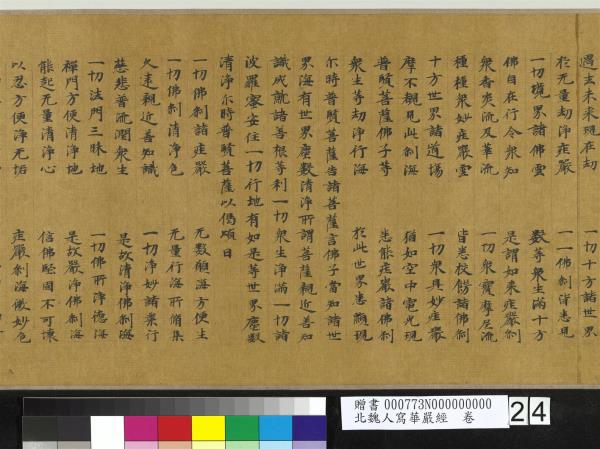 過去未來現在劫 一切十方諸世界
於无量劫淨莊嚴 一一佛刹皆悉見
一切境界諸佛雲 數等衆生滿十方
佛自在行令衆知 是謂如來莊嚴刹
衆香炎流及華流 一切衆寶摩尼流
種種衆妙莊嚴雲 皆悉校餝諸佛刹
十方世界諸道場 一切衆具妙莊嚴
摩不覩見此刹海 猶如空中電光現
普賢菩薩佛子等 悉能莊嚴諸佛刹
衆生等劫淨行海 於此世界悉顯現
尒時普賢菩薩告諸菩薩言佛子當知諸世
界海有世界塵數清淨所謂菩薩親近善知
識成就諸善根等刹一切衆生淨滿一切諸
波羅蜜安住一切行地有如是等世界塵數
清淨尒時普賢菩薩以偈頌曰
一切佛刹諸莊嚴 无數願海方便生
一切佛刹清淨色 无量行海所脩集
久遠親近善知識 一切淨妙諸業行
慈悲普流潤衆生 是故清淨佛刹海
一切法門三昧地 一切佛所淨德海
禪門方便清淨地 是故嚴淨佛刹海
能起无量清淨心 信佛堅固不可壞
以忍方便淨无垢 莊嚴刹海微妙色
贈書 000773N000000000
北魏人寫華嚴經 卷
24